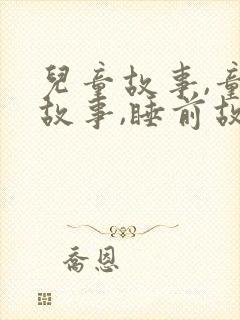 兒童故事,童
故事,睡前故
喬恩